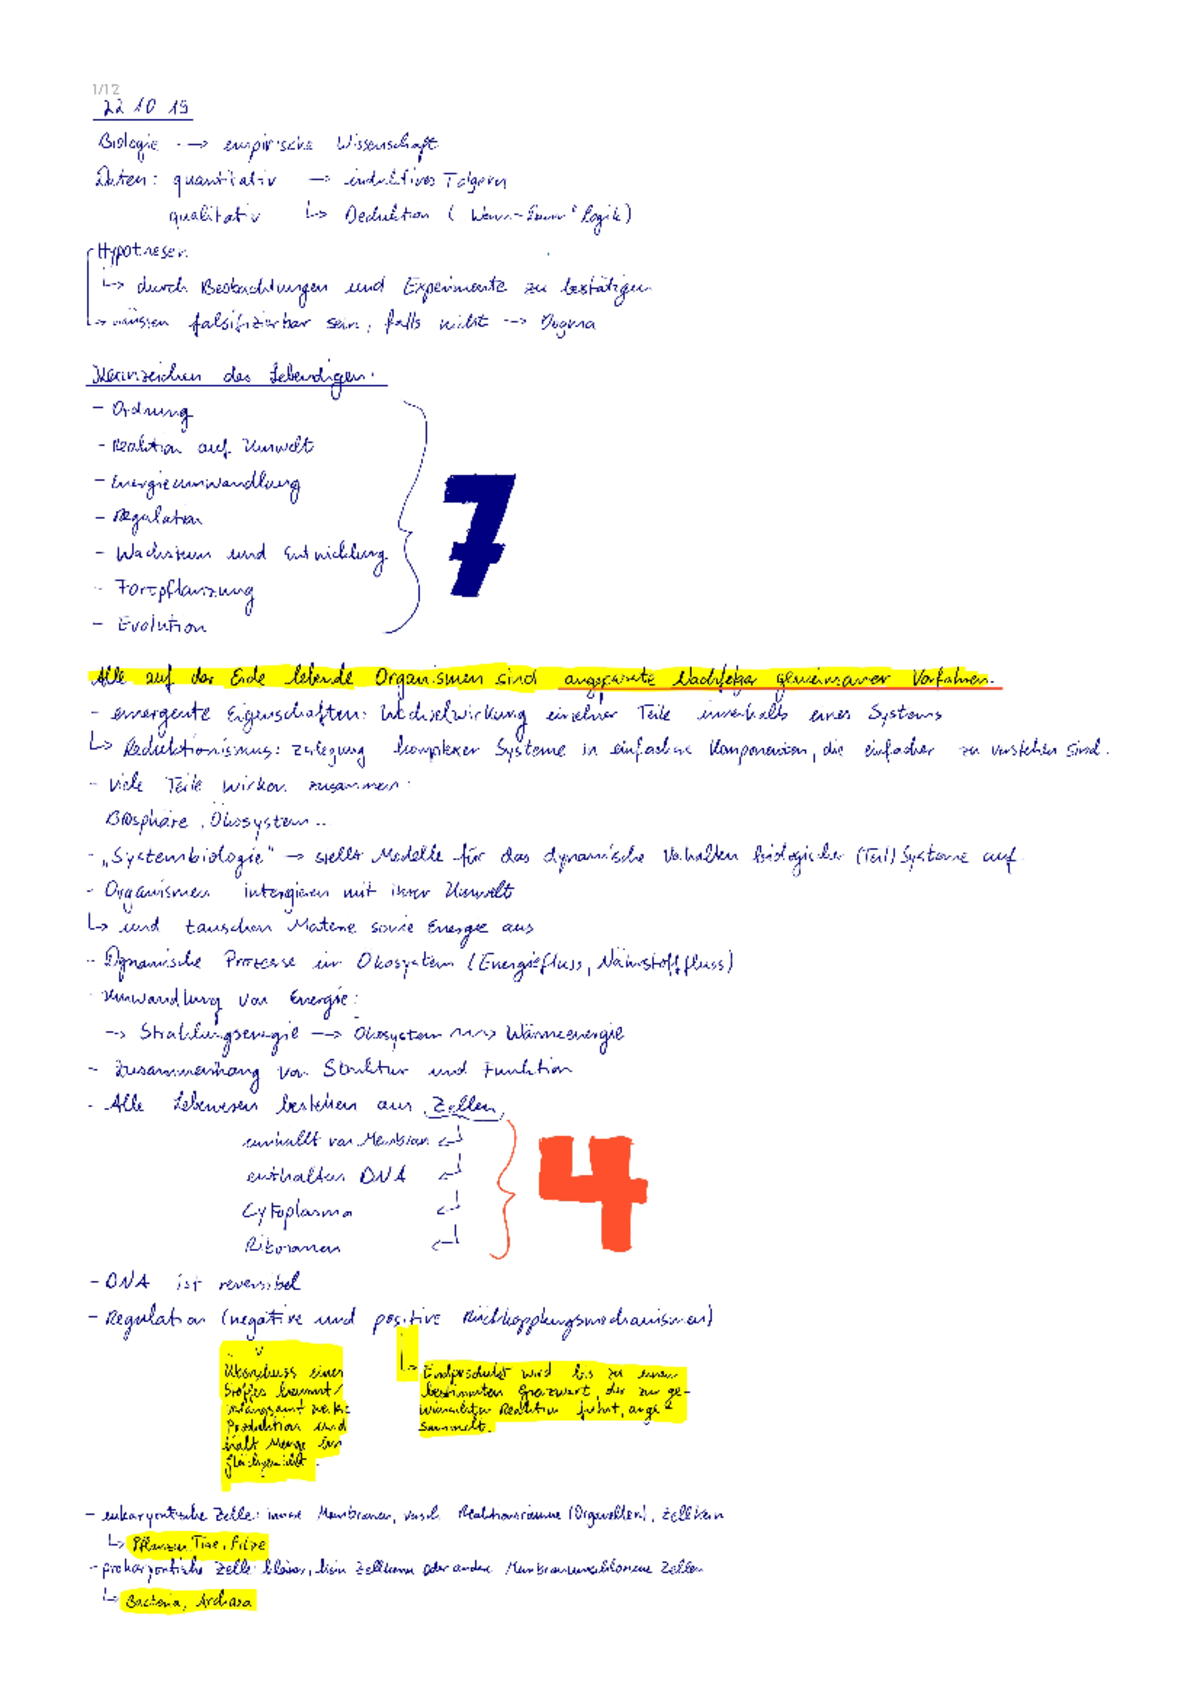 1/12
22 10 19
Biologie --> empirische Wissenschaft
Daten: quantitativ --> induktives Folgern
qualitativ ↳ Deduktion ( Wenn-Dann" logik)
Hypothesen
↳ durch Beobachtungen und Experimente zu bestätigen
↳ müssen falsifizierbar sein, falls nicht --> Dogma
Kennzeichen des Lebendigen:
- Ordnung
- Reaktion auf Umwelt
- Energieumwandlung
- Regulation
- Wachstum und Entwicklung
- Fortpflanzung
- Evolution
7
Alle auf der Erde lebende Organismen sind angepasste Nachfolger gemeinsamer Vorfahren.
- emergente Eigenschaften: Wechselwirkung einzelner Teile innerhalb eines Systems
↳ Reduktionismus: Zerlegung komplexer Systeme in einfachere Komponenten, die einfacher zu verstehen sind.
- viele Teile wirken zusammen:
Biosphäre, Ökosystem...
- „Systembiologie" → stellt Modelle für das dynamische Verhalten biologischer (Teil) Systeme auf
- Organismen intergieren mit ihrer Umwelt
↳ und tauschen Materie sowie Energie aus
- Dynamische Prozesse im Ökosystem (Energiefluss, Nährstofffluss)
- Umwandlung von Energie:
--> Strahlungsenergie --> Ökosystem ~~> Wärmeenergie
- Zusammenhang von Struktur und Funktion
- Alle Lebewesen bestehen aus Zellen
umhüllt von Membran ↲
enthalten DNA ↲
Cytoplasma ↲
Ribosomen ↲
4
- DNA ist reversibel
- Regulation (negative und positive Rückkopplungsmechanismen)
Überschuss eines
Stoffes hemmt/
verlangsamt
Produktion und
hält Menge im
Gleichgewicht.
↳ Endprodukt wird bis zu einem
bestimmten Grenzwert, der zur ge-
wünschten Reaktion führt, ange-
sammelt.
- eukaryontische Zelle: innere Membranen, versch. Reaktionsräume (Organellen), Zellkern
↳ Pflanzen, Tiere, Pilze
- prokaryontische Zelle: kleiner, kein Zellkern oder andere Membranumschlossene Zellen
↳ Bacteria, Archaea